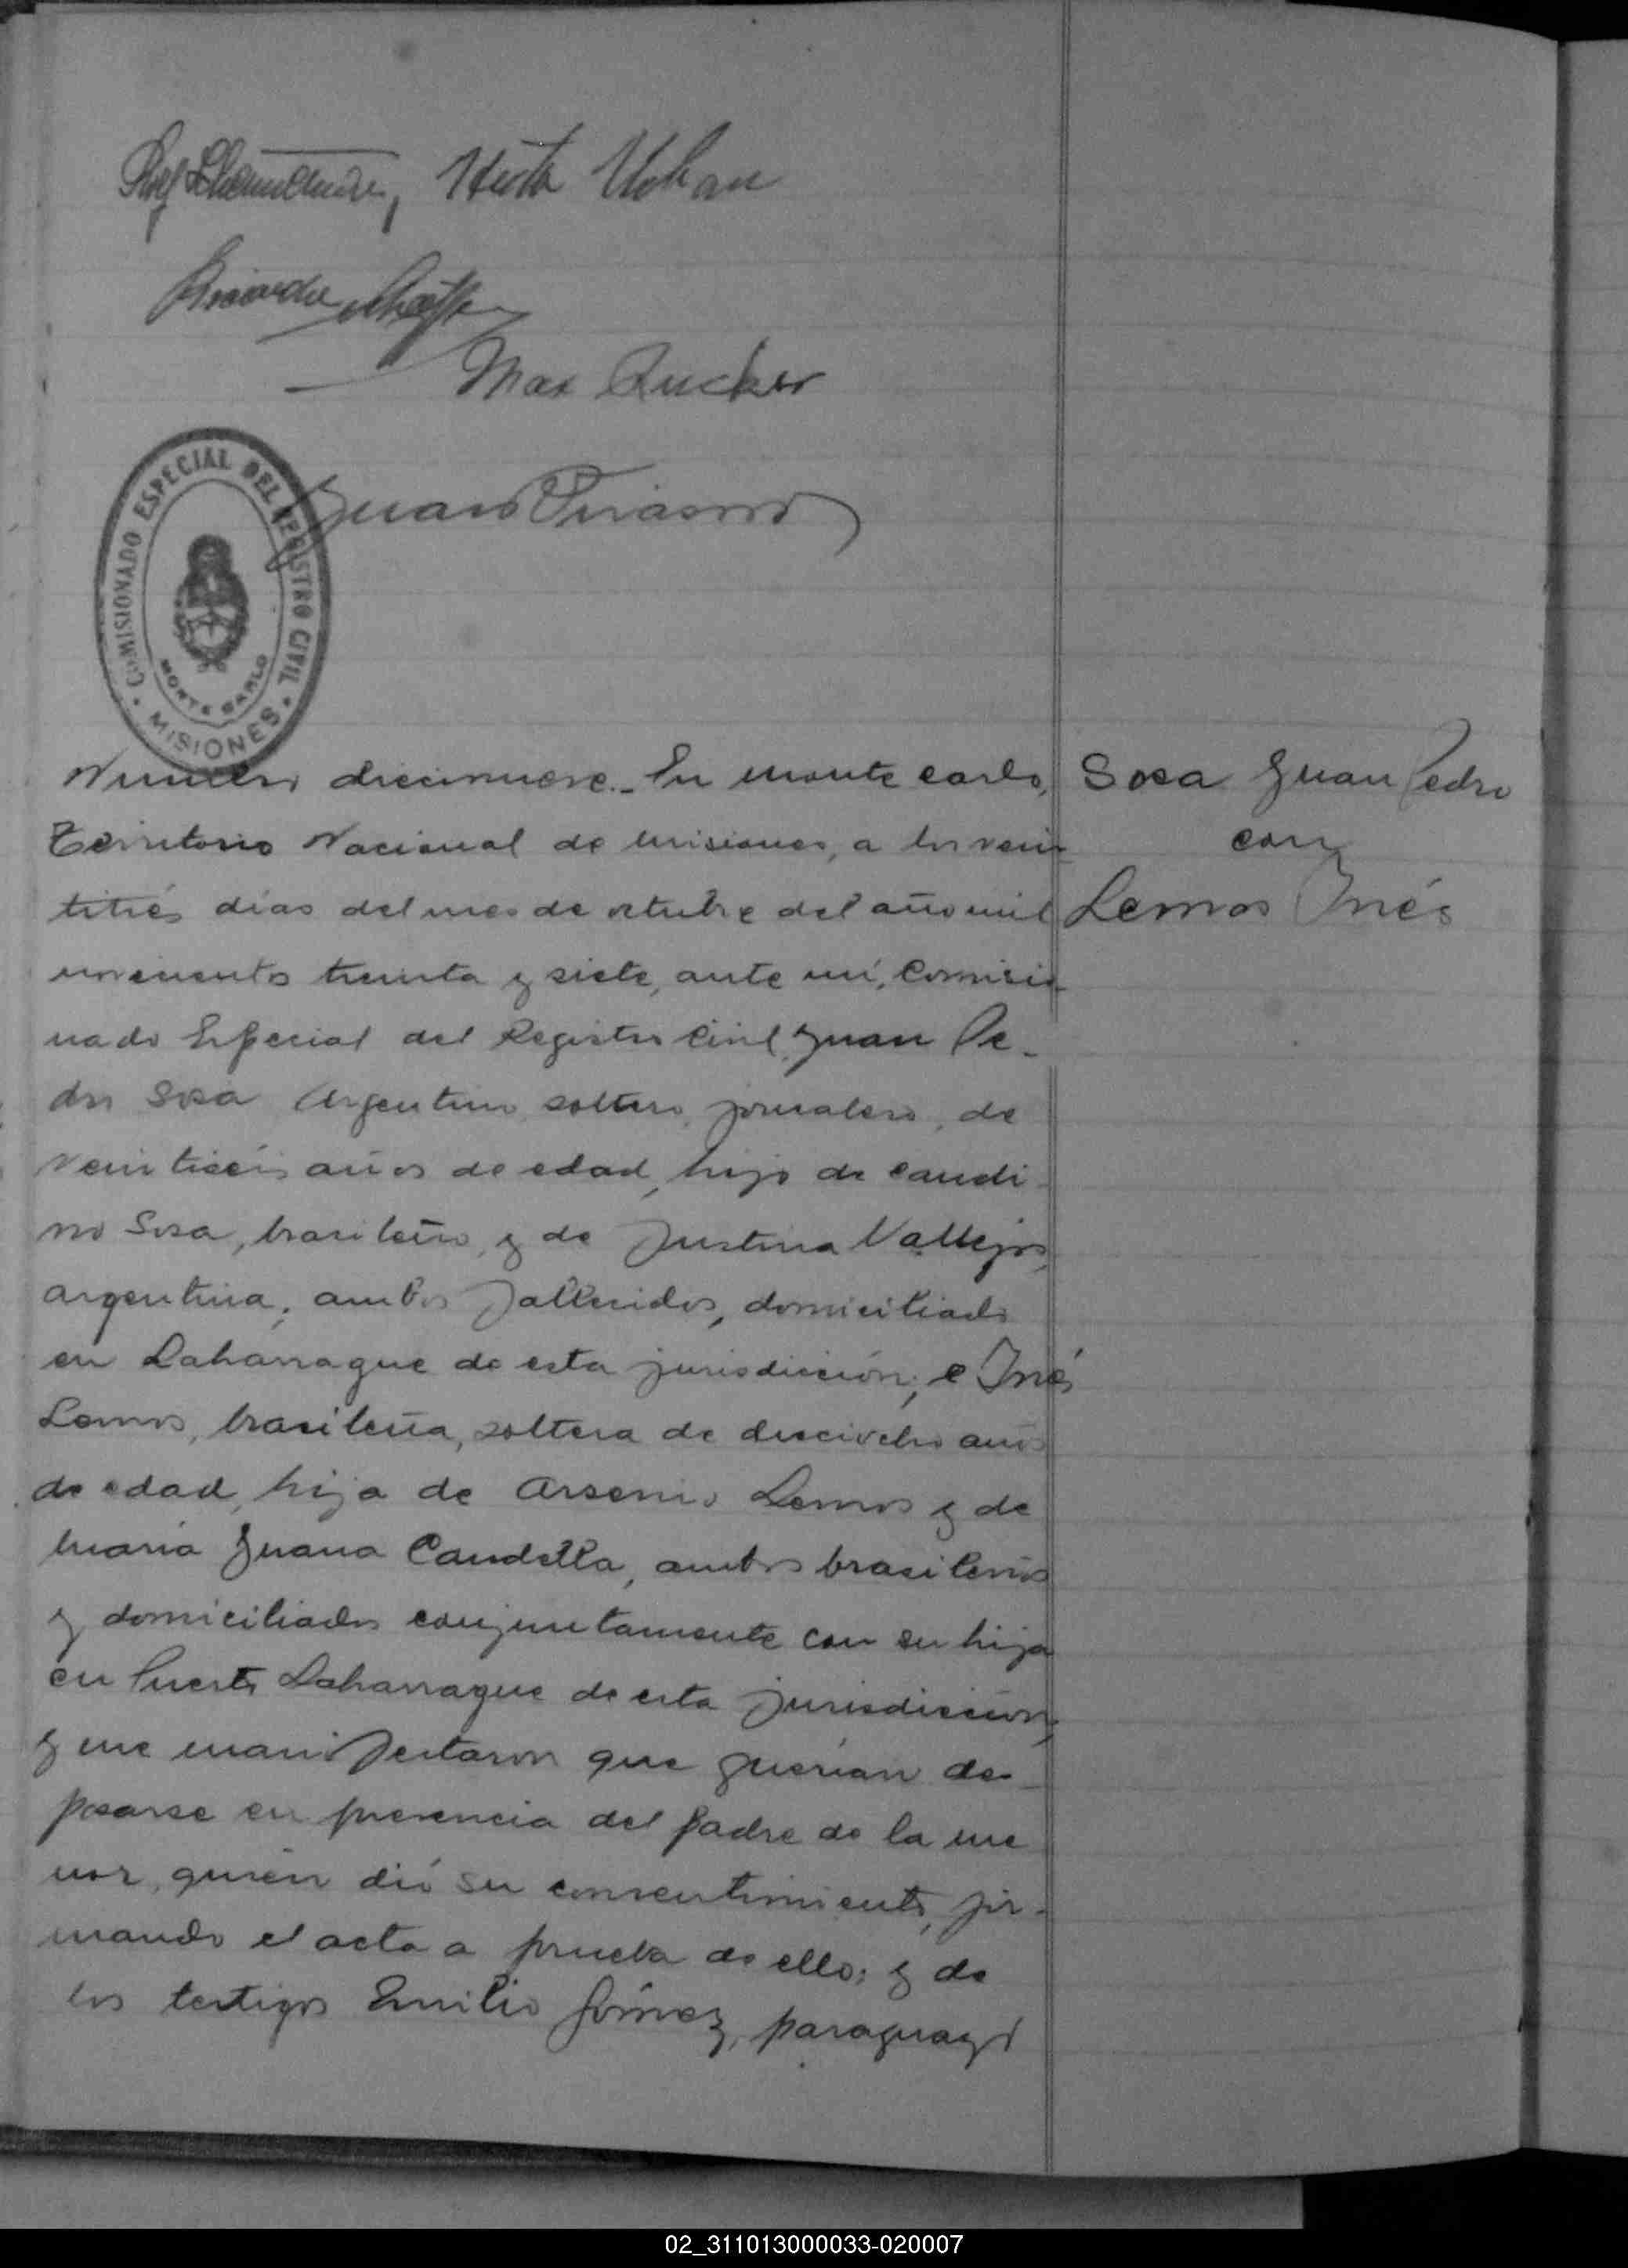 Max Zucker
COMISIONADO ESPECIAL DEL REGISTRO CIVIL
MONTE CARLO
MISIONES
Numero diecinueve.- En monte carlo,
Territorio Nacional de misiones, a los vein
titrés días del mes de octubre del año mil
novecientos treinta y siete, ante mí, Comisio
nado Especial del Registro Civil, Juan Pe-
dro Sosa Argentino, soltero, jornalero, de
veintiseis años de edad, hijo de Candi-
no Sosa, brasileño, y de Justina Vallejos,
argentina; ambos fallecidos, domiciliado
en Laharrague de esta jurisdicción; e Inés
Lemos, brasileña, soltera de dieciocho años
de edad, hija de Arsenio Lemos y de
maría Juana Candella, ambos brasileños
y domiciliados conjuntamente con su hija
en Puerto Laharrague de esta jurisdicción,
y me manifestaron que querían des-
posarse en presencia del padre de la me
nor, quién dió su consentimiento, fir-
mando el acta a prueba de ello; y de
los testigos Emilio Gómez, paraguayo
Sosa Juan Pedro
con
Lemos Inés
02_311013000033-020007